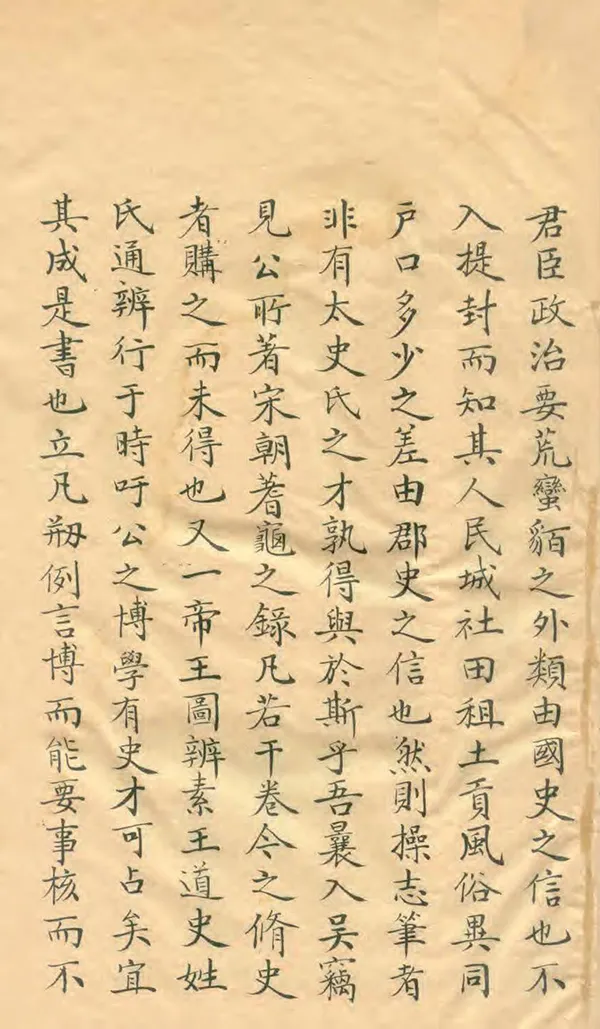 君臣政治要荒蠻貊之外類由國史之信也不
入提封而知其人民城社田租土貢風俗異同
戶口多少之差由郡史之信也然則操志筆者
非有太史氏之才孰得與於斯乎吾曩入吴竊
見公所著宋朝蓍龜之錄凡若干卷今之脩史
者購之而未得也又一帝王圖辨素王道史姓
氏通辨行于時吁公之博學有史才可占矣宜
其成是書也立凡剏例言博而能要事核而不